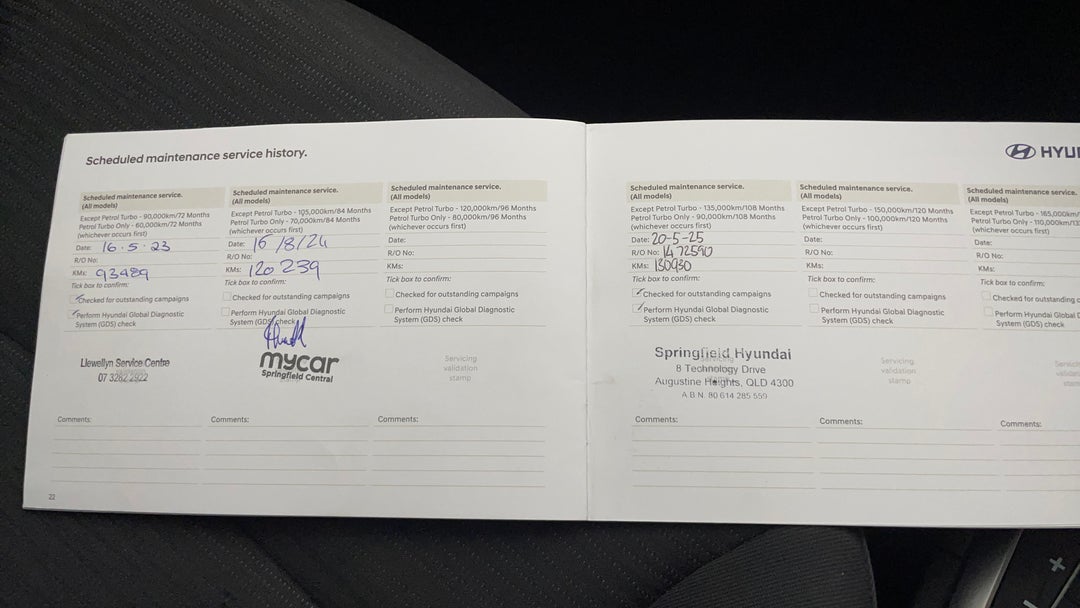 Scheduled maintenance service history.
HYU
Scheduled maintenance service.
(All models)
Except Petrol Turbo - 90,000km/72 Months
Petrol Turbo Only - 60,000km/72 Months
(whichever occurs first)
Date: 16.5.23
R/O No:
KMs: 93489
Tick box to confirm:
Checked for outstanding campaigns
Perform Hyundai Global Diagnostic
System (GDS) check
Llewellyn Service Centre
07 3282 2922
Comments:
Scheduled maintenance service.
(All models)
Except Petrol Turbo - 105,000km/84 Months
Petrol Turbo Only - 70,000km/84 Months
(whichever occurs first)
Date: 16/8/24
R/O No:
KMs: 120 239
Tick box to confirm:
Checked for outstanding campaigns
Perform Hyundai Global Diagnostic
System (GDS) check
mycar
Springfield Central
Comments:
Scheduled maintenance service.
(All models)
Except Petrol Turbo - 120,000km/96 Months
Petrol Turbo Only - 80,000km/96 Months
(whichever occurs first)
Date:
R/O No:
KMs:
Tick box to confirm:
Checked for outstanding campaigns
Perform Hyundai Global Diagnostic
System (GDS) check
Servicing
validation
stamp
Comments:
22
Scheduled maintenance service.
(All models)
Except Petrol Turbo - 135,000km/108 Months
Petrol Turbo Only - 90,000km/108 Months
(whichever occurs first)
Date: 20-5-25
R/O No: 14725910
KMs: 130930
Tick box to confirm:
Checked for outstanding campaigns
Perform Hyundai Global Diagnostic
System (GDS) check
Springfield Hyundai
8 Technology Drive
Augustine Heights, QLD 4300
A.B.N. 80 614 285 559
Comments:
Scheduled maintenance service.
(All models)
Except Petrol Turbo - 150,000km/120 Months
Petrol Turbo Only - 100,000km/120 Months
(whichever occurs first)
Date:
R/O No:
KMs:
Tick box to confirm:
Checked for outstanding campaigns
Perform Hyundai Global Diagnostic
System (GDS) check
Servicing
validation
stamp
Comments:
Scheduled maintenance service.
(All models)
Except Petrol Turbo - 165,000km/
Petrol Turbo Only - 110,000km/13
(whichever occurs first)
Date:
R/O No:
KMs:
Tick box to confirm:
Checked for outstanding c
Perform Hyundai Global D
System (GDS) check
Servicin
validati
stam
Comments: